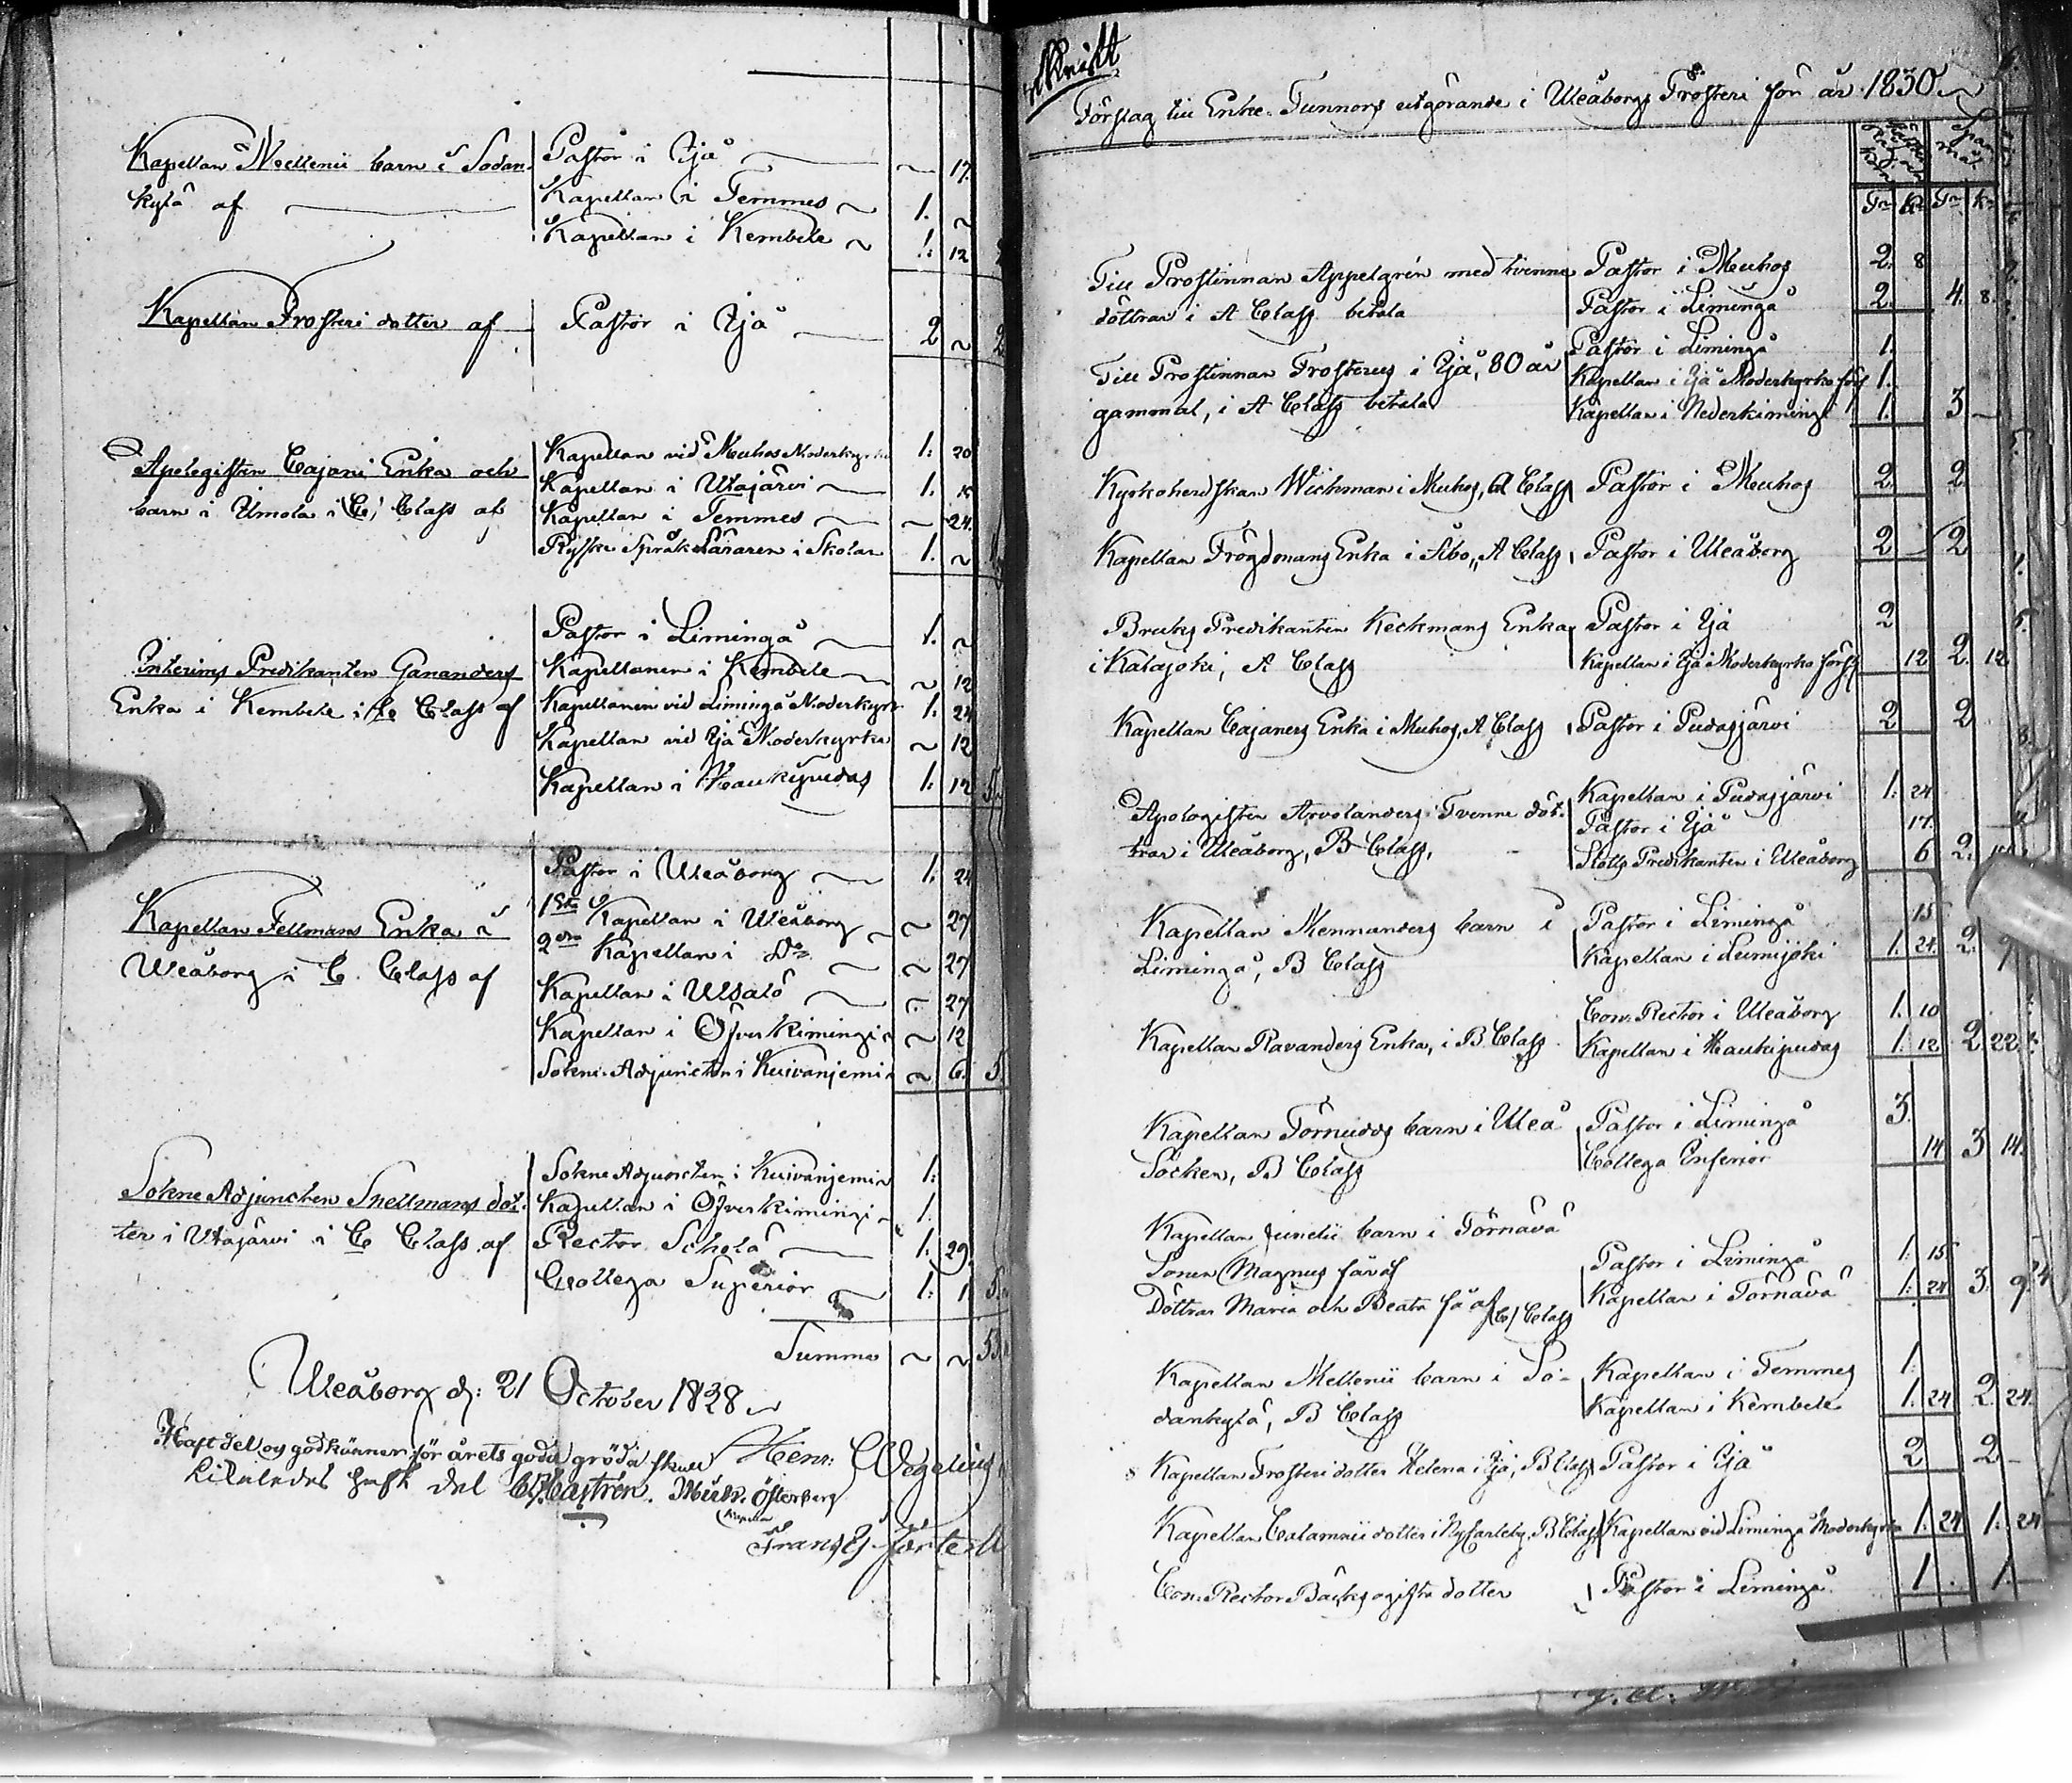 Kapellan Mellenii barn i Sodan- Pastor i Ijå ~ 17.
kylä af Kapellan i Temmes ~ 1. ~
Kapellan i Kembele ~ 1: 12
Kapellan Frosteri dotter af Pastor i Ijå 2 ~ 2
Apologisten Cajani Enka och Kapellan vid Muhos Moderkyrka 1: 20
barn i Umola i C, Class af Kapellan i Utajärvi 1. 15
Kapellan i Temmes ~ 24.
Ryska Språk Läraren i Skolan 1. ~
Pastor i Limingå 1. ~
Interims Predikanten Gananders Kapellanen i Kembele ~ 12
Enka i Kembele i C Class af Kapellanen vid Limingå Moderkyrk 1: 24
Kapellan vid Ijå Moderkyrka ~ 12
Kapellan i Haukipudas 1: 12 5.
Pastor i Uleåborg 1: 24
Kapellan Fellmans Enka i 1sta Kapellan i Uleåborg ~ 27
Uleåborg i C. Class af 2dra Kapellan i Do ~ 27
Kapellan i Ulsalo ~ 27
Kapellan i Öfverkimingi ~ 12
Sokne Adjuncten i Kuivanjemi ~ 6. 5.
Sokne Adjuncten i Kuivanjemi 1:
Sokne Adjuncten Snellmans dot- Kapellan i Öfverkimingi 1.
ter i Utajärvi i C Class af Rector Scholæ 1. 29.
Collega Superior 1: 1. 5.
Summa ~ ~ 53
Uleåborg d: 21 October 1828
Haft del og godkänner för årets goda gröda skull Henr: Wegelius
Likaledes haft del Castrén. Mich. Österberg
Kapellan
Frans J. Forsell
Afskrift
Förslag till Enke-Tunnors utgörande i Uleåborgs Prosteri för år 1830
Spanmål
Tr Kr Tr Kr
Till Prostinnan Appelgrén med tvenne Pastor i Muhos 2. 8
döttrar i A Class betala Pastor i Limingå 2. 4. 8.
Till Prostinnan Frosterus i Ijå, 80 år Pastor i Limingå 1.
gammal, i A Class betala Kapellan i Ijå Moderkyrko förs 1.
Kapellan i Nederkimingi 1. 3 –
Kyrkoherdskan Wichman i Muhos, A Class Pastor i Muhos 2. 2.
Kapellan Frögdmans Enka i Åbo, A Class, Pastor i Uleåborg 2 – 2
Bruks Predikanten Keckmans Enka Pastor i Ijå 2
i Kalajoki, A Class Kapellan i Ijå Moderkyrko förs 12 2. 12
Kapellan Cajaners Enka i Muhos, A Class Pastor i Pudasjärvi 2 2
Apologisten Arvolanders Tvenne döt- Kapellan i Pudasjärvi 1. 24
trar i Uleåborg, B Class, Pastor i Ijå 17.
Slotts Predikanten i Uleåborg 6 2.
Kapellan Mennanders barn i Pastor i Limingå 15
Limingå, B Class Kapellan i Lumijoki 1. 24. 2. 9
Kapellan Ravanders Enka, i B Class Con. Rector i Uleåborg 1. 10
Kapellan i Haukipudas 1. 12 2. 22.
Kapellan Törnudds barn i Uleå Pastor i Limingå 3.
Socken, B Class Collega Inferior 14 3 14.
Kapellan Junelii barn i Törnävä
Sonen Magnus får af Pastor i Limingå 1. 15
Döttrar Maria och Beata få af C/ Class Kapellan i Törnävä 1: 24 3. 9
Kapellan Mellenii barn i So- Kapellan i Temmes 1.
dankylä, B Class Kapellan i Kembele 1. 24 2. 24.
Kapellan Frosteri dotter Helena i Ijå, B Class Pastor i Ijå 2 2 –
Kapellan Calamnii dotter i NyCarleby, B Class Kapellan vid Limingå Moderkyrka 1: 24 1: 24
Con. Rector Bäcks ogifta dotter Pastor i Limingå 1. 1.